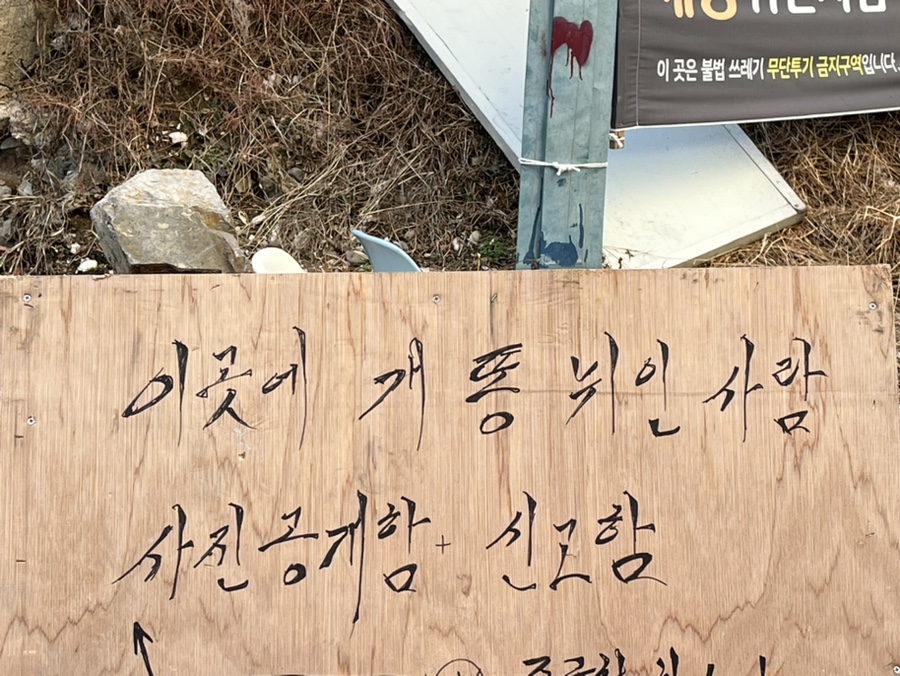 이 곳은 불법 쓰레기 무단투기 금지구역입니다.
이곳에 개 똥 뉘인 사람
사진공개함 + 신고함